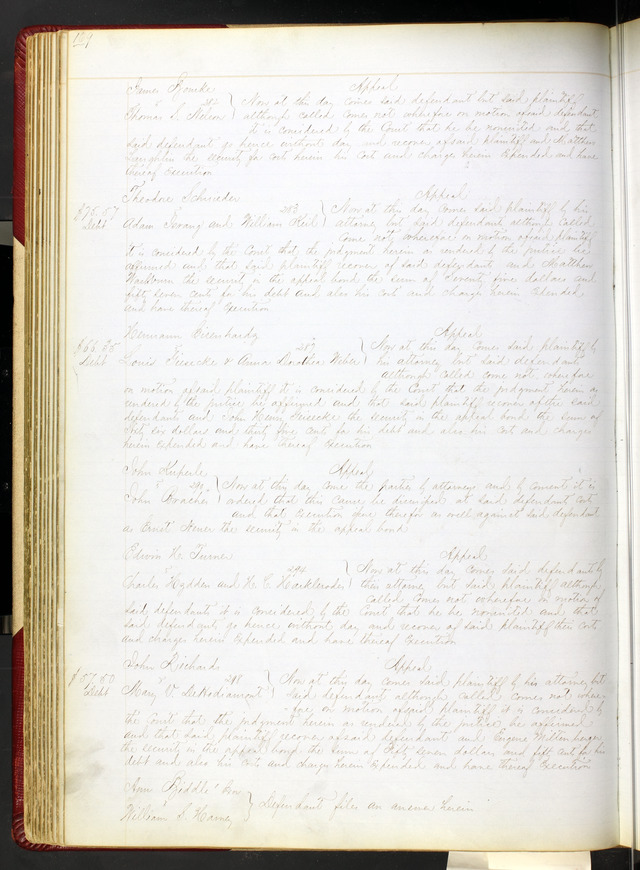 James Rourke Appeal
vs 281 Now at this day comes said defendant but said plaintiff
Thomas S. Nelson although called come not wherefore on motion of said defendant
it is considered by the Court that he be nonsuited and that
said defendant go hence without day and recover of said plaintiff and Matthew
Laughlin the security for costs herein his cost and charges herein expended and have
thereof Execution
Theodore Schrieder Appeal
$75.57 vs 283 Now at this day comes said plaintiff by his
Debt Adam and William Keil attorney but said defendant although called
come not wherefore on motion of said plaintiff
it is considered by the Court that the judgment herein as rendered by the justice be
affirmed and that said plaintiff recover of said defendant and Matthew
the security in the appeal bond the sum of Seventy five dollars and
fifty seven cents for his debt and also his cost and charges herein expended
and have thereof Execution
Hermann Eisenhardy Appeal
$66.35 vs 289 Now at this day comes said plaintiff by
Debt Louis Giesecke & Anna Dorothea Weber his attorney but said defendant
although called come not wherefore
on motion of said plaintiff it is considered by the Court that the judgment herein as
rendered by the justice be affirmed and that said plaintiff recover of the said
defendant and John Henry Giesecke the security in the appeal bond the sum of
Sixty six dollars and thirty five cents for his debt and also his cost and charges
herein expended and have thereof Execution
John Kuperle Appeal
vs 290 Now at this day come the parties by attorneys and by consent it is
John Bracher ordered that this cause be dismissed at said defendant cost
and that Execution issue therefor as well against said defendant
as Ernst the security in the appeal bond
Edwin H. Turner Appeal
vs 294 Now at this day comes said defendant by
Charles Hadden and H. C. Hacklerode their attorney but said plaintiff although
called comes not wherefore on motion of
said defendant it is considered by the Court that he be nonsuited and that
said defendant go hence without day and recover of said plaintiff their cost
and charges herein expended and have thereof Execution
John Richards Appeal
$57.50 vs 298 Now at this day comes said plaintiff by his attorney but
Debt Mary V. DeKodiamont said defendant although called comes not where-
fore on motion of said plaintiff it is considered by
the Court that the judgment herein as rendered by the justice be affirmed
and that said plaintiff recover of said defendant and Eugene
the security in the appeal bond the sum of Fifty seven dollars and fifty cents for his
debt and also his cost and charges herein expended and have thereof Execution
Ann Biddle
vs Defendant files an answer herein
William S. Harney